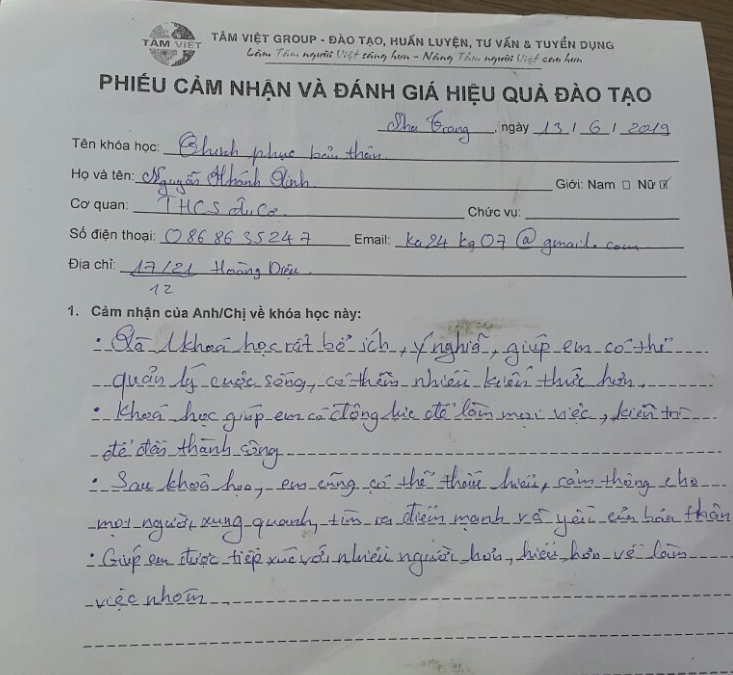 TÂM VIỆT
TÂM VIỆT GROUP - ĐÀO TẠO, HUẤN LUYỆN, TƯ VẤN & TUYỂN DỤNG
Làm Tâm người Việt sáng hơn - Nâng Tầm người Việt cao hơn
PHIẾU CẢM NHẬN VÀ ĐÁNH GIÁ HIỆU QUẢ ĐÀO TẠO
Nha Trang, ngày 13/6/2019
Tên khóa học: Chinh phục bản thân
Họ và tên: Nguyễn Khánh Linh Giới: Nam ☐ Nữ ☑
Cơ quan: THCS Âu Cơ Chức vụ:
Số điện thoại: 0868635247 Email: ka24kg07@gmaile.com
Địa chỉ: 17/21 Hoàng Diệu
12
1. Cảm nhận của Anh/Chị về khóa học này:
• Là 1 khoá học rất bổ ích, ý nghĩa, giúp em có thể
quản lý cuộc sống, có thêm nhiều kiến thức hơn.
• Khoá học giúp em có động lực để làm mọi việc, kiên trì
để đến thành công
• Sau khoá học, em cũng có thể thấu hiểu, cảm thông cho
mọi người xung quanh, tìm ra điểm mạnh và yếu của bản thân
• Giúp em được tiếp xúc với nhiều người hơn, hiểu hơn về làm
việc nhóm